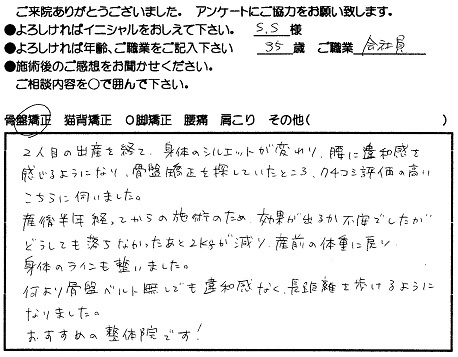 ご来院ありがとうございました。 アンケートにご協力をお願い致します。
●よろしければイニシャルをおしえて下さい。 S.S 様
●よろしければ年齢、ご職業をご記入下さい 35 歳 ご職業 会社員
●施術後のご感想をお聞かせください。
ご相談内容を○で囲んで下さい。
骨盤矯正 猫背矯正 O脚矯正 腰痛 肩こり その他( )
2人目の出産を経て、身体のシルエットが変わり、腰に違和感を
感じるようになり、骨盤矯正を探していたところ、クチコミ評価の高い
こちらに伺いました。
産後半年経ってからの施術のため 効果が出るか不安でしたが
どうしても落ちなかったあと2kgが減り、産前の体重に戻り、
身体のラインも整いました。
何より骨盤ベルト無しでも違和感なく、長距離も歩けるように
なりました。
おすすめの整体院です!